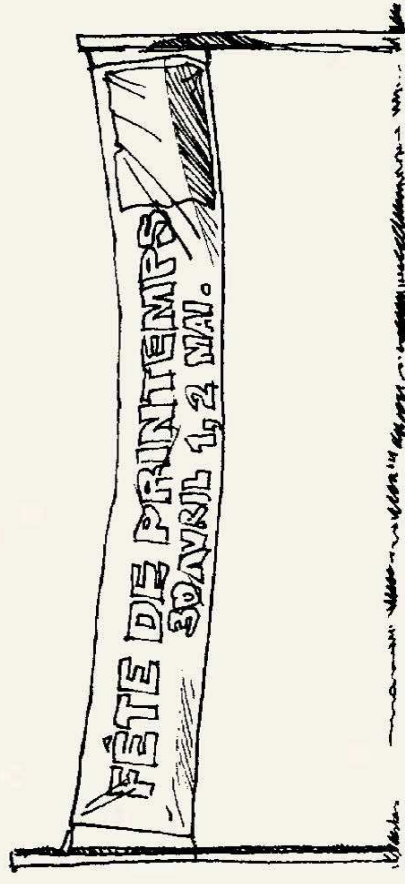 FÊTE DE PRINTEMPS
30 AVRIL 1, 2 MAI.